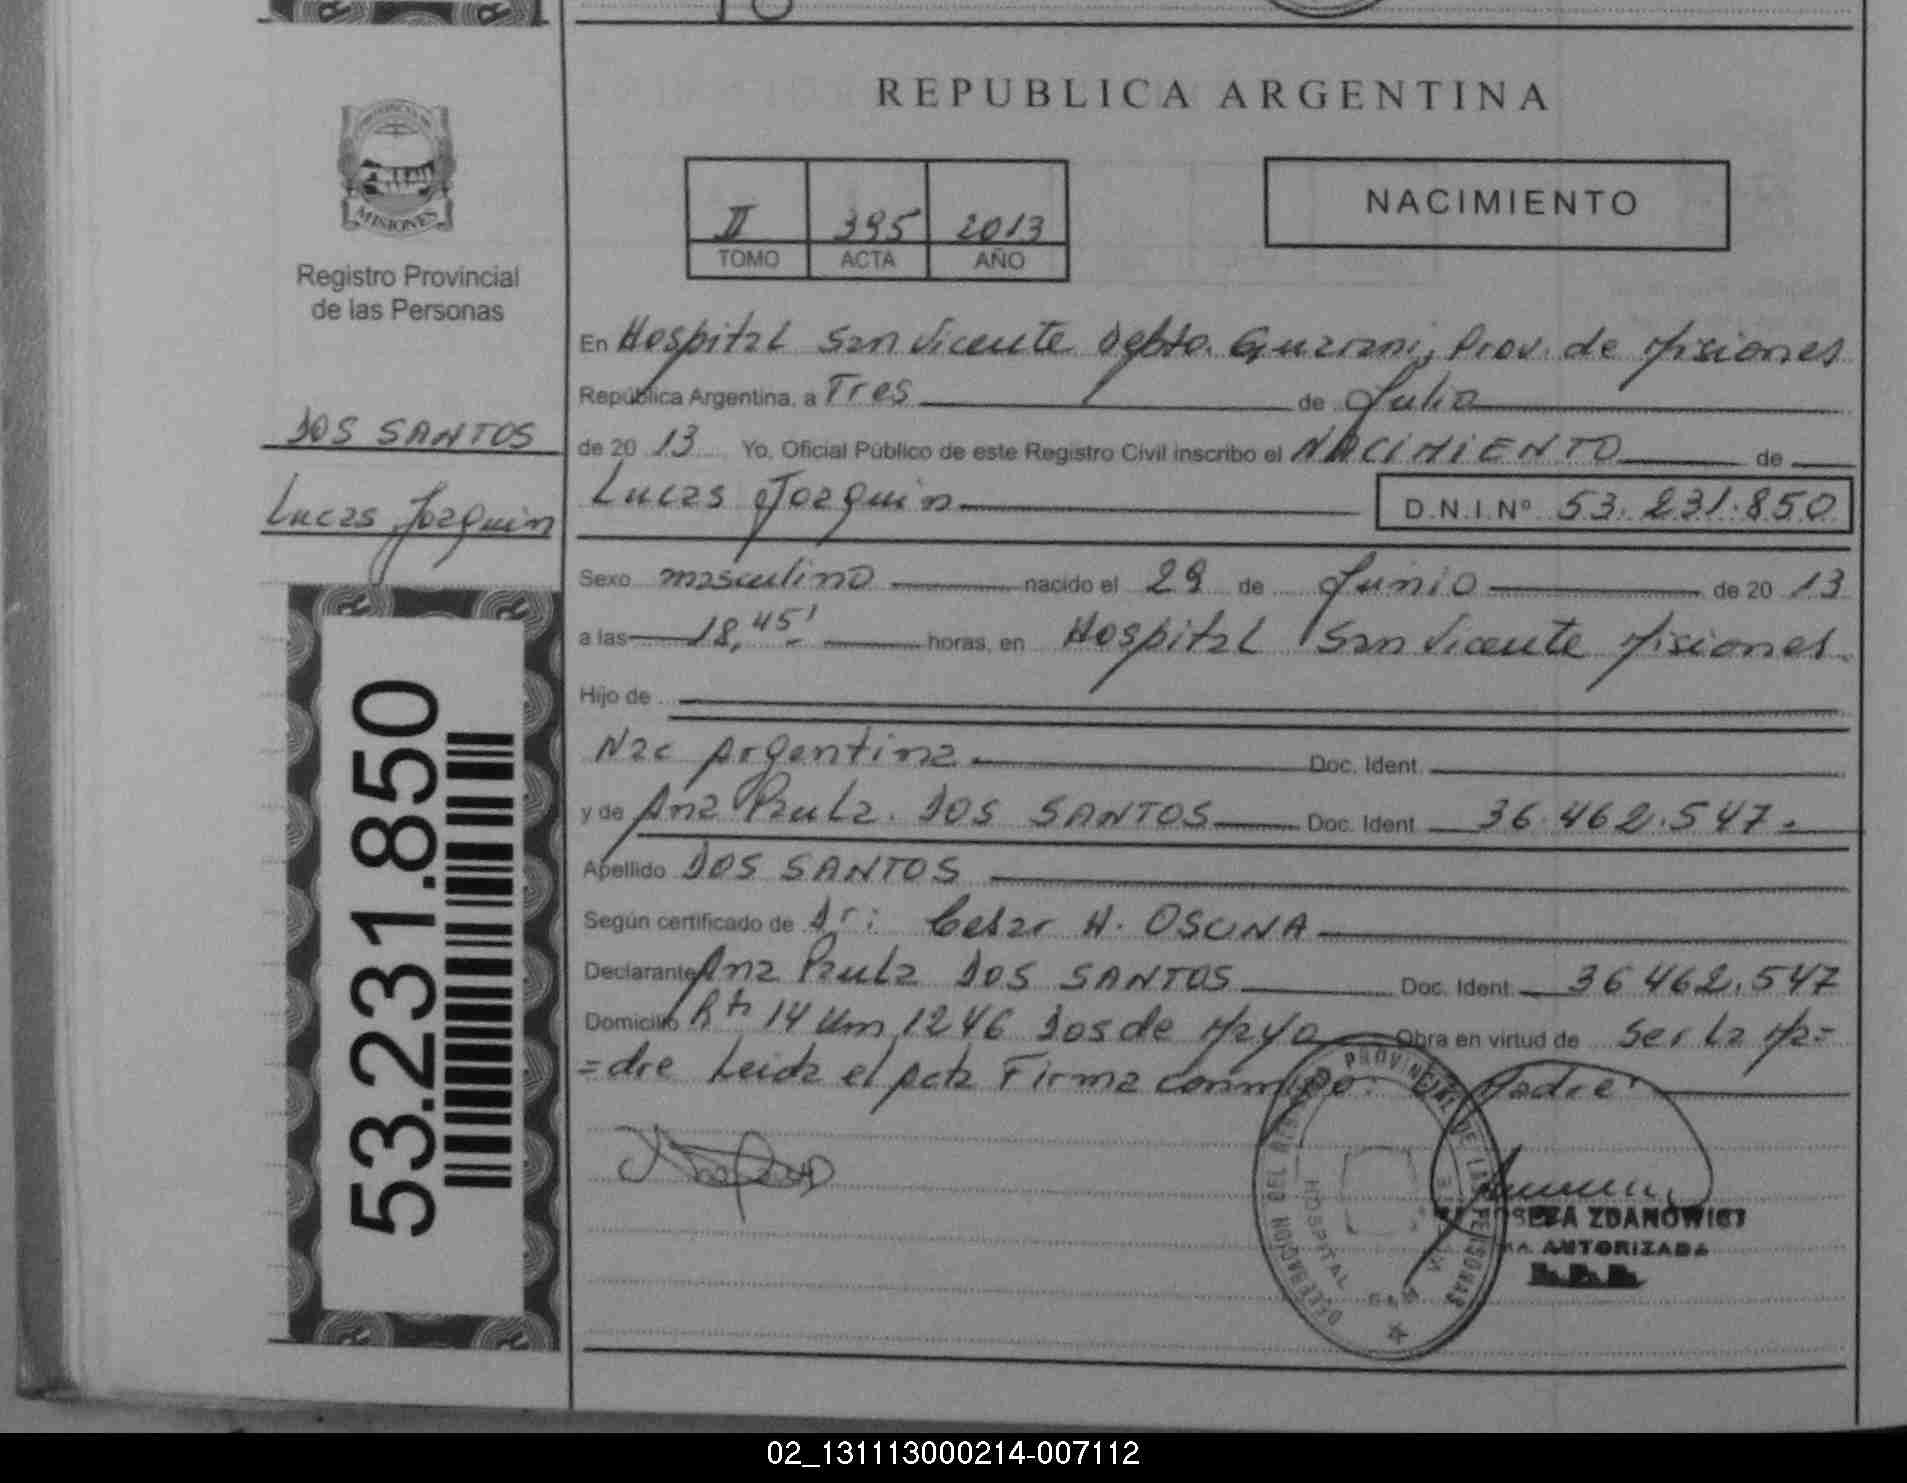 REPUBLICA ARGENTINA
MISIONES
Registro Provincial
de las Personas
II 395 2013
TOMO ACTA AÑO
NACIMIENTO
DOS SANTOS
Lucas Joaquin
53.231.850
En Hospital San Vicente Dpto. Guarani, Prov. de Misiones
República Argentina, a Tres de Julio
de 20 13 Yo, Oficial Público de este Registro Civil inscribo el NACIMIENTO de
Lucas Joaquin D.N.I.Nº 53.231.850
Sexo masculino nacido el 29 de Junio de 20 13
a las 18,45' horas, en Hospital San Vicente Misiones.
Hijo de
Nac Argentina Doc. Ident.
y de Ana Paula DOS SANTOS Doc. Ident. 36.462.547.
Apellido DOS SANTOS
Según certificado de Dr: Cesar H. OSUNA
Declarante Ana Paula DOS SANTOS Doc. Ident. 36 462.547
Domicilio Rta 14 Km 1246 Dos de Mayo Obra en virtud de Ser La Ma=
=dre Leida el Acta Firma conmigo: Madre
PROVINCIAL DE LAS PERSONAS
DELEGACION DEL
HOSPITAL
ZDANOWICZ
AUTORIZADA
02_131113000214-007112